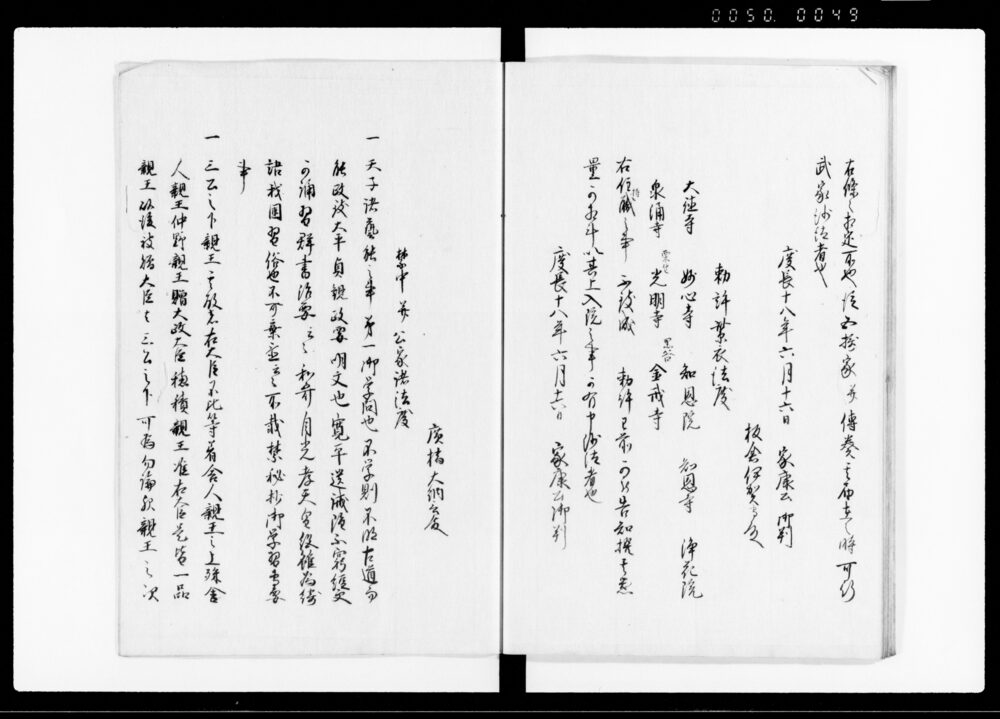 0050. 0049
右條々相定所也従五摂家并傳奏之届在之時可行
武家沙法者也
慶長十八年六月十六日 家康公御判
板倉伊賀守殿
勅許紫衣法度
大徳寺 妙心寺 知恩院 知恩寺 浄花院
泉涌寺 粟生光明寺 黒谷金戒寺
右住持職之事不被成 勅許已前可被告知撰其器
量可相斗以其上入院之事可有申沙法者也
慶長十八年六月十六日 家康公御判
廣橋大納言殿
禁中并公家諸法度
一 天子諸藝能之事第一御学問也不学則不明古道而
能政致太平貞観政要明文也寛平遺誡雖不窮経史
可誦習群書治要云々和哥自光孝天皇役雖為綺
語我国習俗也不可棄置云々所載禁秘抄御学習専要
事
一 三公之下親王其故者右大臣不比等着舎人親王之上殊舎
人親王仲野親王贈太政大臣穂積親王准右大臣是皆一品
親王以後被贈大臣者三公之下可為勿論歟親王之次